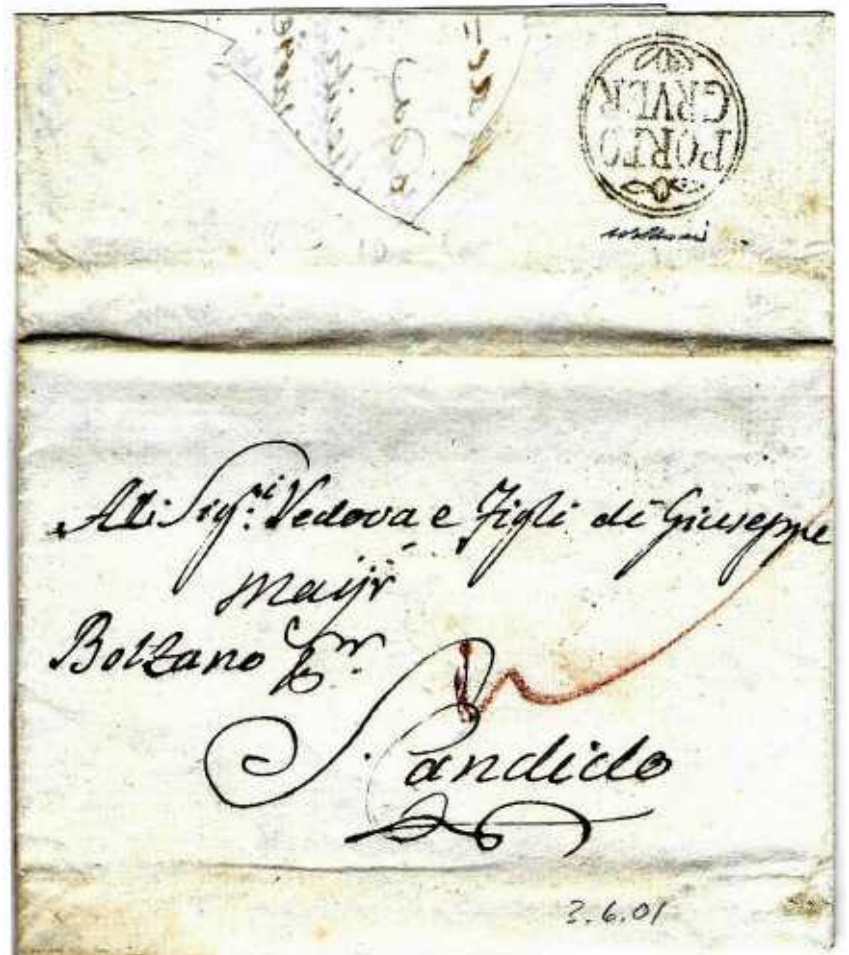 PORTO
GRVER
Alli Sig.ri Vedova e Figli di Giuseppe
Mayr
Bolzano per
S. Candido
3.6.01